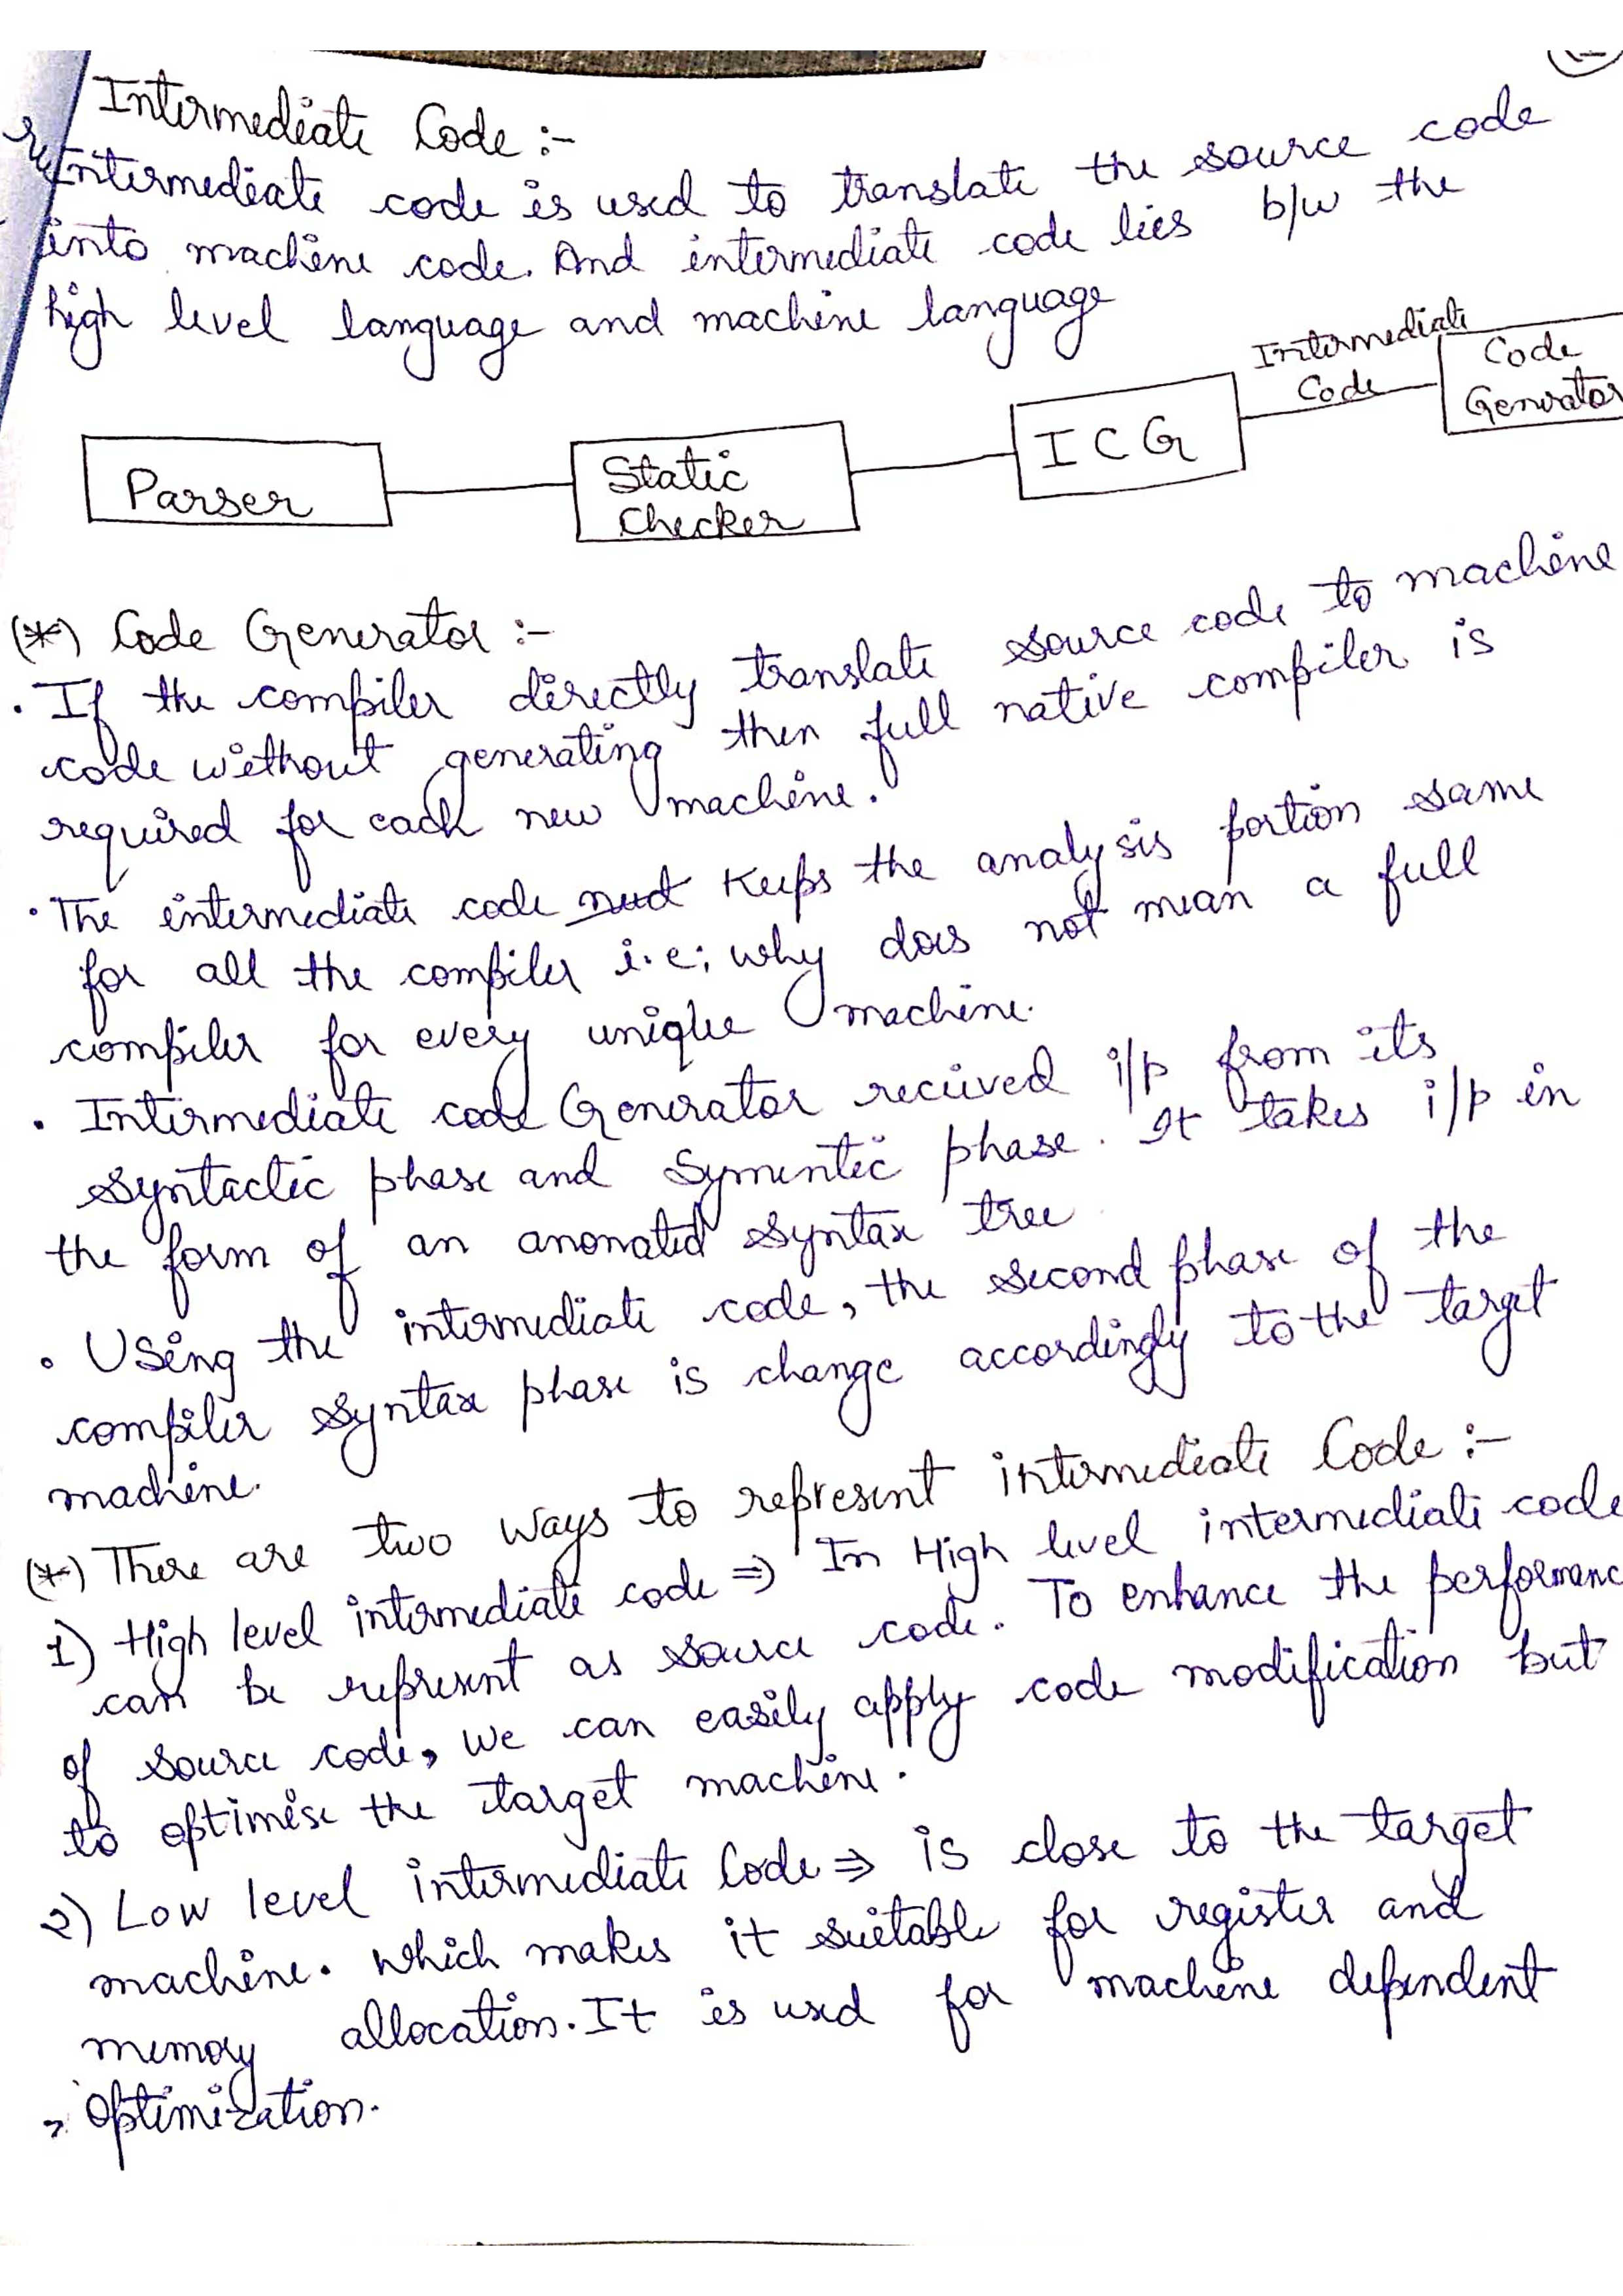 Intermediate Code :-
Intermediate code is used to translate the source code
into machine code. And intermediate code lies b/w the
high level language and machine language
Intermediate
Code
Parser
Static
Checker
ICG
Code
Generator
(*) Code Generator :-
. If the compiler directly translate source code to machine
code without generating then full native compiler is
required for each new machine.
. The intermediate code Keeps the analysis portion same
for all the compiler i.e; why does not mean a full
compiler for every unique machine.
. Intermediate code Generator received i/p from its
syntactic phase and Symentic phase. It takes i/p in
the form of an anonated syntax tree
. Using the intermediate code, the second phase of the
compiler syntax phase is change accordingly to the target
machine.
(*) There are two ways to represent intermediate Code :-
1) High level intermediate code ⇒ In High level intermediate code
can be represent as source code. To enhance the performanc
of source code, we can easily apply code modification but
to optimise the target machine.
2) Low level intermediate Code ⇒ is close to the target
machine. Which makes it suitable for register and
memory allocation. It is used for machine dependent
optimization.